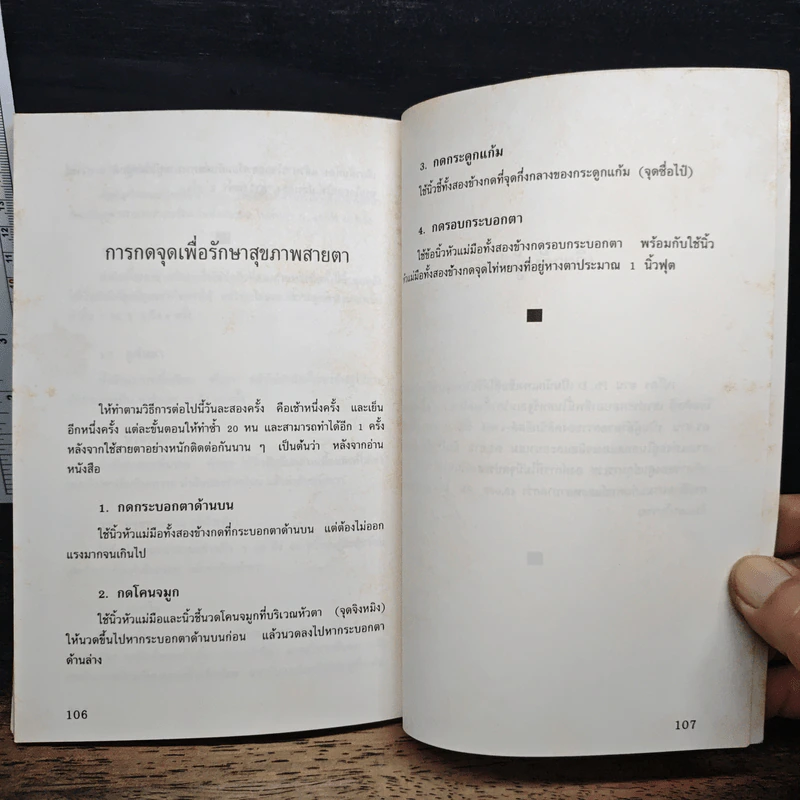 การกดจุดเพื่อรักษาสุขภาพสายตา
ให้ทำตามวิธีการต่อไปนี้วันละสองครั้ง คือเช้าหนึ่งครั้ง และเย็น
อีกหนึ่งครั้ง แต่ละขั้นตอนให้ทำซ้ำ 20 หน และสามารถทำได้อีก 1 ครั้ง
หลังจากใช้สายตาอย่างหนักติดต่อกันนาน ๆ เป็นต้นว่า หลังจากอ่าน
หนังสือ
1. กดกระบอกตาด้านบน
ใช้นิ้วหัวแม่มือทั้งสองข้างกดที่กระบอกตาด้านบน แต่ต้องไม่ออก
แรงมากจนเกินไป
2. กดโคนจมูก
ใช้นิ้วหัวแม่มือและนิ้วชี้นวดโคนจมูกที่บริเวณหัวตา (จุดจิงหมิง)
ให้นวดขึ้นไปหากระบอกตาด้านบนก่อน แล้วนวดลงไปหากระบอกตา
ด้านล่าง
106
3. กดกระดูกแก้ม
ใช้นิ้วชี้ทั้งสองข้างกดที่จุดกึ่งกลางของกระดูกแก้ม (จุดซื่อไป๋)
4. กดรอบกระบอกตา
ใช้ข้อนิ้วหัวแม่มือทั้งสองข้างกดรอบกระบอกตา พร้อมกับใช้นิ้ว
หัวแม่มือทั้งสองข้างกดจุดไท่หยางที่อยู่หางตาประมาณ 1 นิ้วฟุต
107